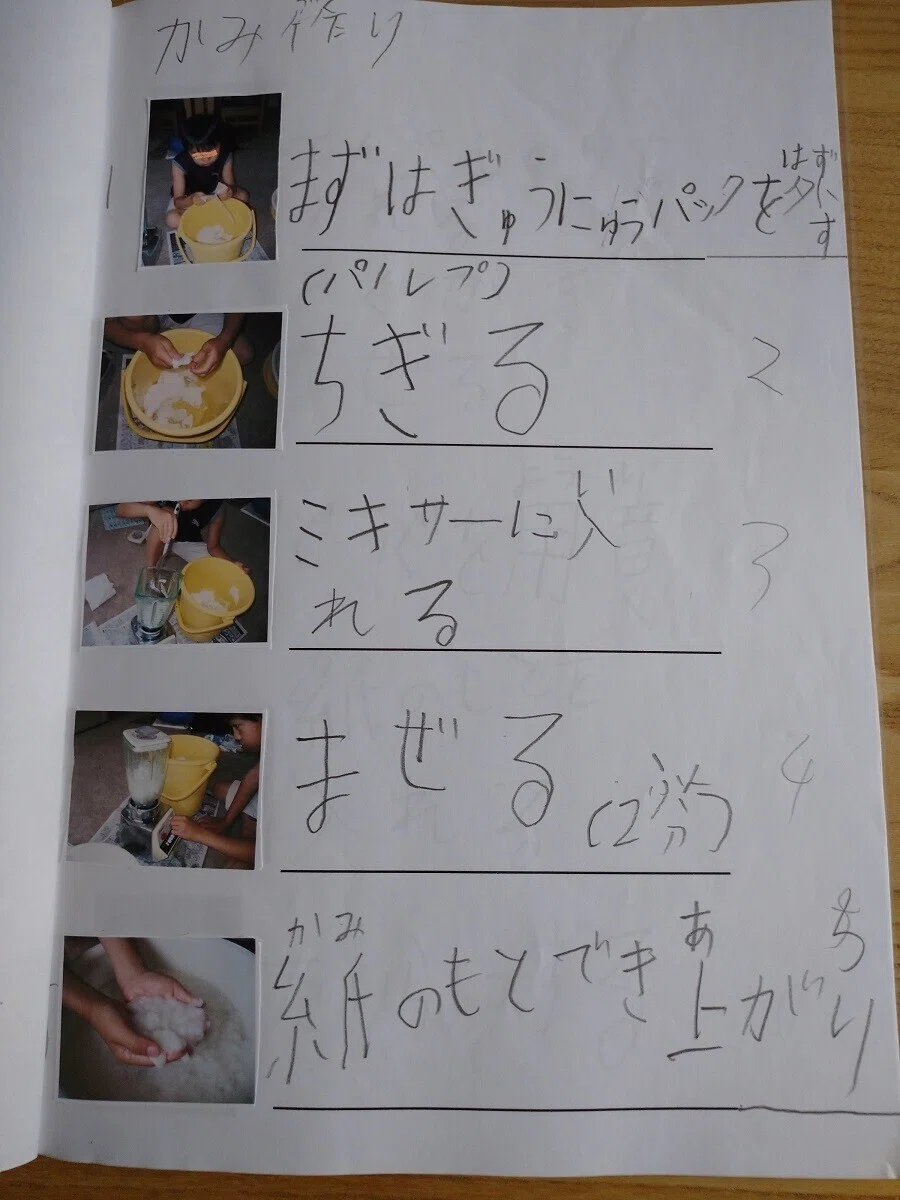 かみ作り
1
まずはぎゅうにゅうパックを外す
はず
(パルプ)
ちぎる
2
ミキサーに入
い
れる
3
まぜる (2分)
ふん
4
紙のもとでき上がり
かみ
あ
5